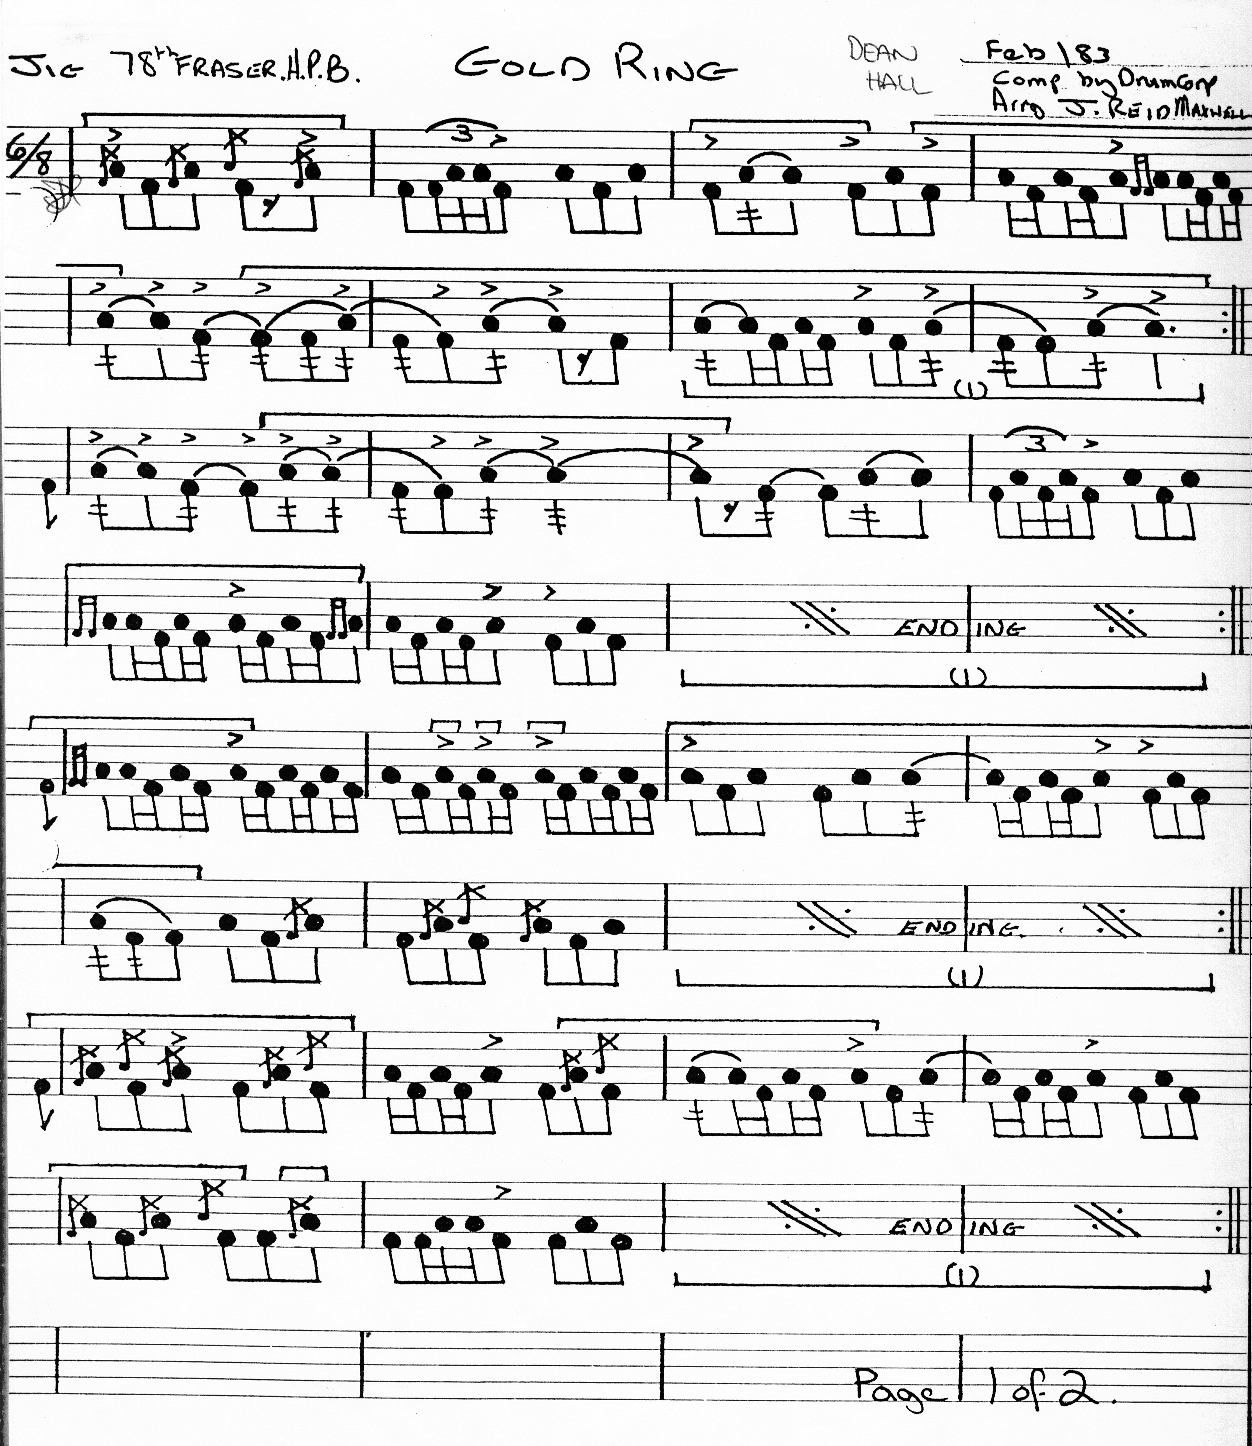 JIG 78th FRASER.H.P.B. GOLD RING DEAN HALL Feb/83
Comp by Drum Corp
Arrg J. REID MAXWELL
6/8
3
(1)
3
ENDING
(1)
ENDING.
(1)
ENDING
(1)
Page 1 of 2.